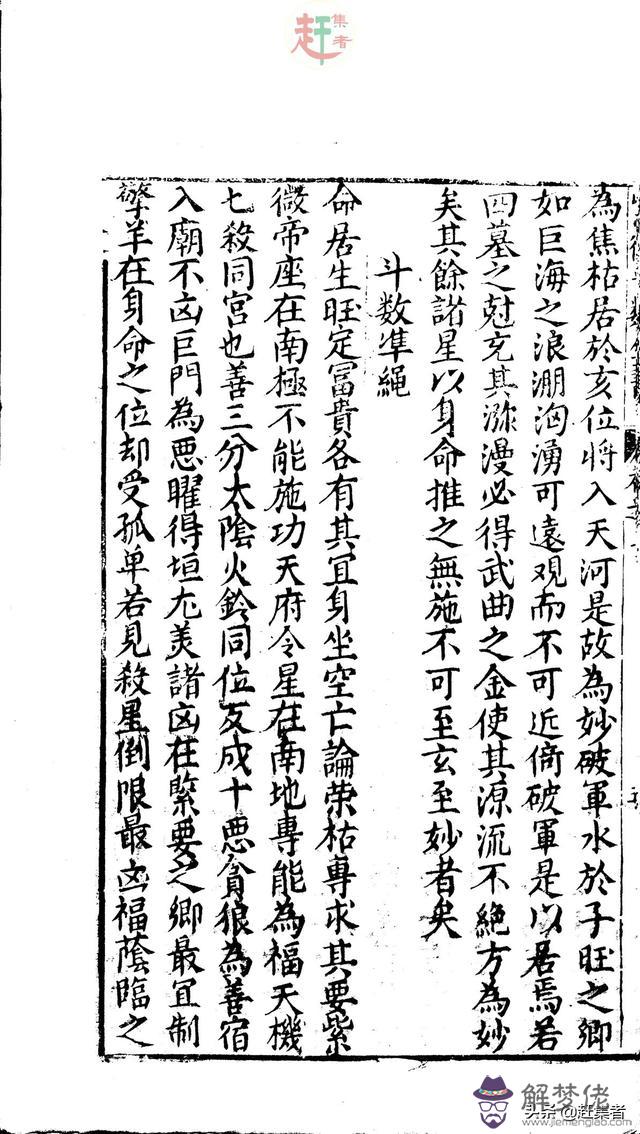 赶集者
為焦枯居於亥位將入天河是故為妙破軍水於子旺之鄉
如巨海之浪淜洶湧可遠观而不可近倚破軍是以居焉若
四墓之尅充其㳽漫必得武曲之金使其源流不絶方為妙
矣其餘諸星以身命推之無施不可至玄至妙者矣
斗数準繩
命居生旺定冨貴各有其冝身坐空亡論荣枯專求其要紫
微帝座在南極不能施功天府令星在南地專能為福天機
七殺同宮也善三分太陰火鈴同位反成十悪貪狼為善宿
入廟不凶巨門為悪曜得垣尤美諸凶在緊要之鄉最冝制
擎羊在身命之位却受孤单若見殺星倒限最凶福蔭臨之
解梦佬
头条@赶集者
www.jiemenglao.com